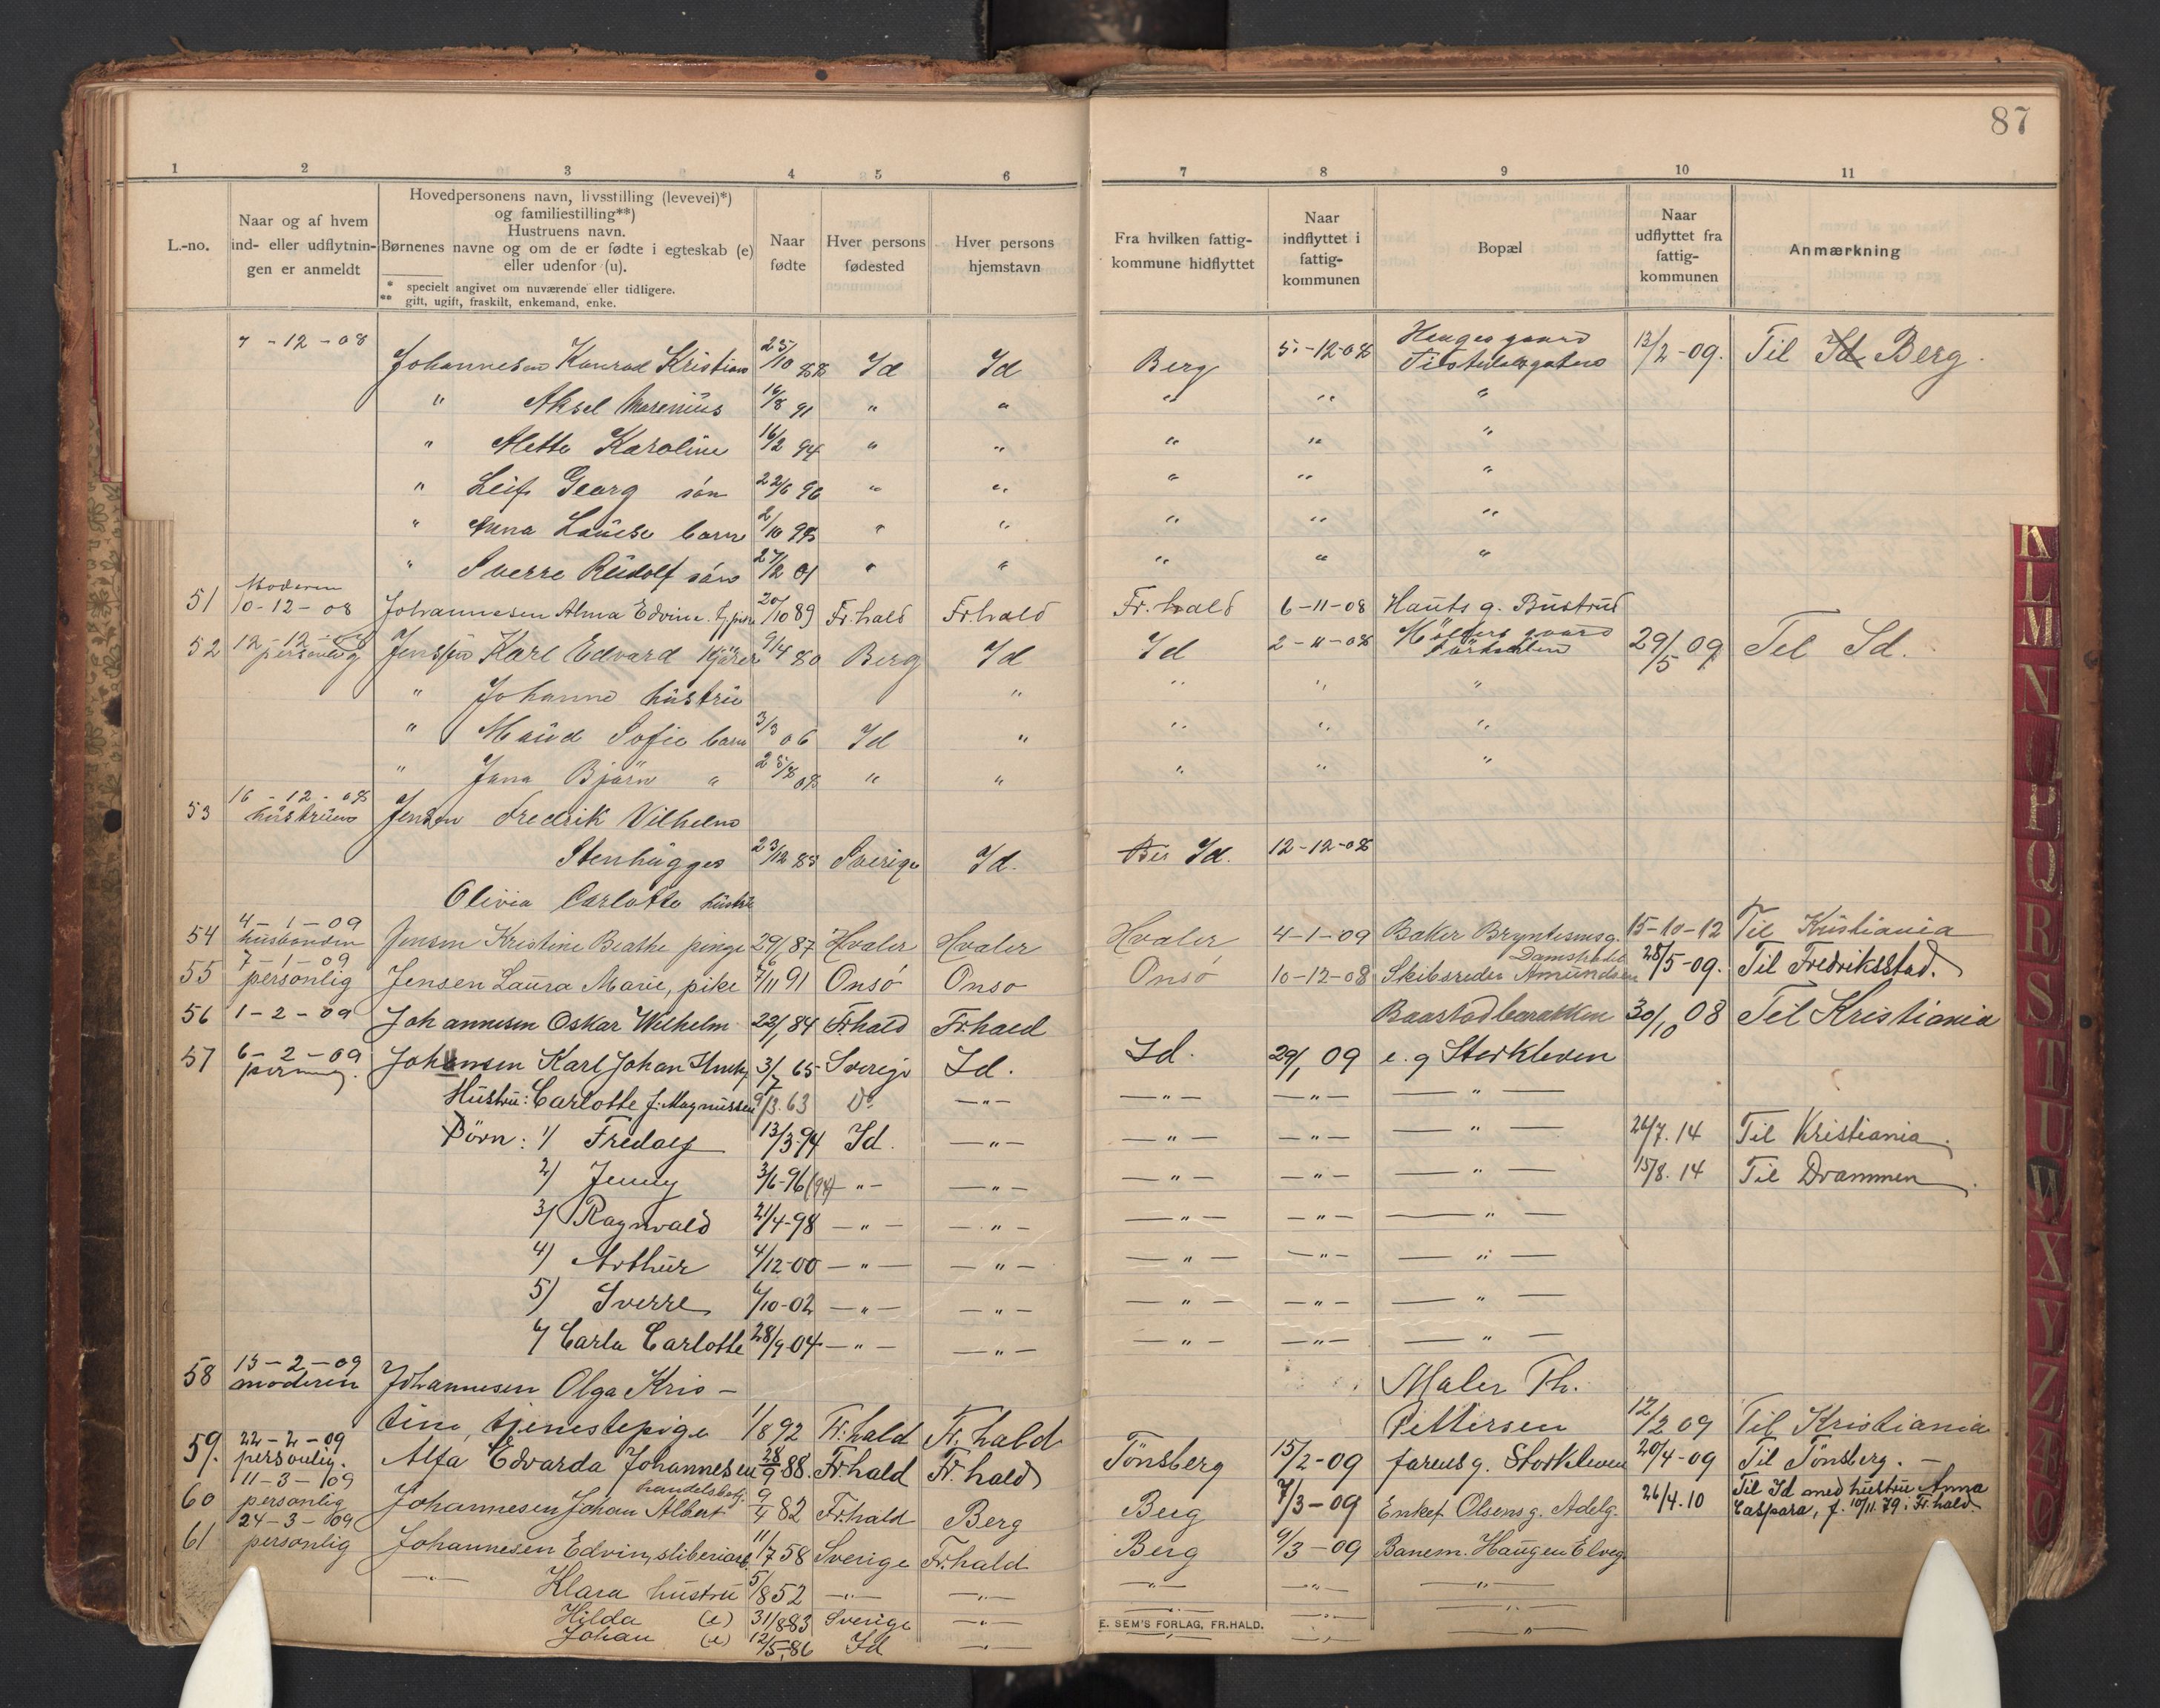 87
1 2 3 4 5 6 7 8 9 10 11
L.-no.
Naar og af hvem
ind- eller udflytnin-
gen er anmeldt
Hovedpersonens navn, livsstilling (levevei)*)
og familiestilling**)
Hustruens navn.
Børnenes navne og om de er fødte i egteskab (e)
eller udenfor (u).
* specielt angivet om nuværende eller tidligere.
** gift, ugift, fraskilt, enkemand, enke.
Naar
fødte
Hver persons
fødested
Hver persons
hjemstavn
Fra hvilken fattig-
kommune hidflyttet
Naar
indflyttet i
fattig-
kommunen
Bopæl
Naar
udflyttet fra
fattig-
kommunen
Anmærkning
7-12-08 Johannesen Konrad Kristian 25/10 88 Id Id Berg 5-12-08 Tistedalsgaten 13/2-09. Til Id Berg.
" Aksel Marenius 16/8 91 " " " " "
" Mette Karoline 16/2 94 " " " " "
" Leif Georg søn 22/6 96 " " " " "
" Anna Louise barn 2/10 98 " " " " "
" Sverre Rudolf søn 27/12 01 " " " " "
51 Moderen 10-12-08 Johannesen Alma Edvine 20/10 89 Fr.hald Fr.hald Fr.hald 6-11-08 Hauts g. Bustrud
52 12-12-08 personlig Jensen Karl Edvard kjører 9/4 80 Berg Id Id 2-11-08 29/5 09 Til Id.
" Johanne hustru " " " "
" Maud Sofie barn 3/3 06 Id " " " "
" Jens Bjørn " 25/8 08 " " " " "
53 16-12-08 hustruen Jensen Fredrik Vilhelm
Stenhugger 23/12 83 Sverige Id. Ber Id. 12-12-08
Olivia Carlotte hustru
54 4-1-09 husbonden Jensen Kristine Beathe pige 29/1 87 Hvaler Hvaler Hvaler 4-1-09 Baker Bryntesensg. 15-10-12 Til Kristiania
55 7-1-09 personlig Jensen Laura Marie, pike 7/11 91 Onsø Onsø Onsø 10-12-08 Skibsreder Amundsen 28/5-09. Til Fredriksstad.
56 1-2-09 Johannesen Oskar Wilhelm 22/1 84 Fr.hald Fr.hald Baastadbarakken 30/10 08 Til Kristiania
57 6-2-09 Johansen Karl Johan 3/7 65 Sverige Id. Id. 29/1 09 e. g Storkleven
Hustru: Carlotte f. Magnussen 9/3.63 Do — " — — " — — " — — " —
Børn: 1) Fredolf 13/3 94 Id. — " — — " — — " — — " — 26/7.14 Til Kristiania.
2) Jenny 3/6-96 (94) — " — — " — — " — — " — — " — 15/8.14 Til Drammen.
3) Ragnvald 21/4-98 — " — — " — — " — — " — — " —
4) Arthur 4/12-00 — " — — " — — " — — " — — " —
5) Sverre 6/10-02 — " — — " — — " — — " — — " —
6) Carla Carlotte 28/9-04 — " — — " — — " — — " — — " —
58 13-2-09 moderen Johannesen Olga Kris- Maler Th.
tine, tjenestepige 1/8 92 Fr.hald Fr.hald Pettersen 12/2 09 Til Kristiania
59. 22-2-09 personlig. Alfa Edvarda Johannesen 28/9 88. Fr.hald Fr.hald Tönsberg 15/2-09 Storkleven 20/4-09 Til Tönsberg. —
60 11-3-09 personlig Johannesen Johan Albert handelsbetj. 9/4 82 Fr.hald Berg Berg 7/3-09 Enkef. Olsens g. Adelg. 26/4.10 Til Id med hustru Anna
Caspara, f. 10/11 79 i Fr.hald.
61 24-3-09 personlig Johannesen Edvin, sliberiarb. 11/7 58 Sverige Fr.hald Berg 9/3-09 Banem. Haugen Elveg.
— " — Klara hustru 5/8 52 — " — — " — — " — — " — — " —
Hilda (e) 31/8 83 Sverige — " — — " — — " — — " —
Johan (e) 12/5-86 Id — " — — " — — " — — " —
E. SEM'S FORLAG, FR.HALD.
K
L
M
N
O
P
Q
R
S
T
U
W
X
Y
Z
Æ
Ø